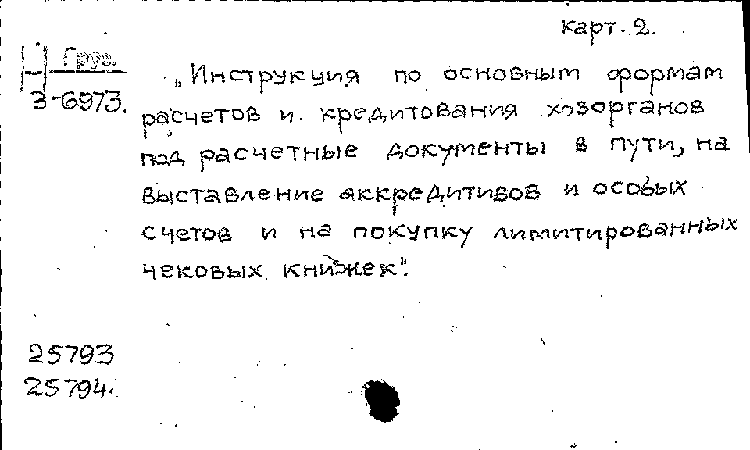 Карт. 2.
Н Груз.
3-6973.
„Инструкция по основным формам
расчетов и кредитования хозорганов
под расчетные документы в пути, на
выставление аккредитивов и особых
счетов и на покупку лимитированных
чековых книжек".
25793
25794.